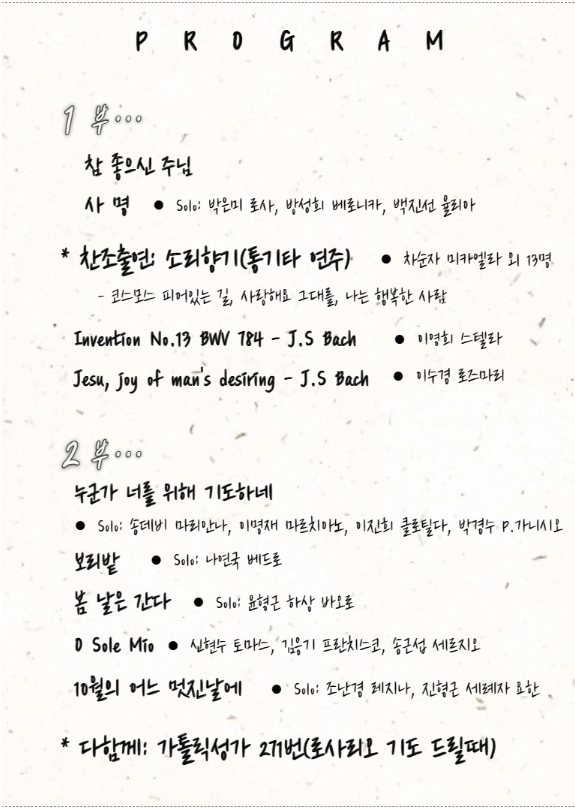 P R O G R A M
1 부...
참 좋으신 주님
사 명 ● Solo: 박은미 로사, 방성희 베로니카, 백진선 율리아
* 찬조출연: 소리향기(통기타 연주) ● 차순자 미카엘라 외 13명
- 코스모스 피어있는 길, 사랑해요 그대를, 나는 행복한 사람
Invention No.13 BWV 784 - J.S Bach ● 이영희 스텔라
Jesu, joy of man's desiring - J.S Bach ● 이수경 로즈마리
2 부...
누군가 너를 위해 기도하네
● Solo: 송데비 마리안나, 이명재 마르치아노, 이진희 클로틸다, 박경수 P.가니시오
보리밭 ● Solo: 나연국 베드로
봄 날은 간다 ● Solo: 윤형근 하상 바오로
O Sole Mio ● 신현수 토마스, 김응기 프란치스코, 송근섭 세르지오
10월의 어느 멋진날에 ● Solo: 조난경 레지나, 진형근 세례자 요한
* 다함께: 가톨릭성가 271번(로사리오 기도 드릴때)